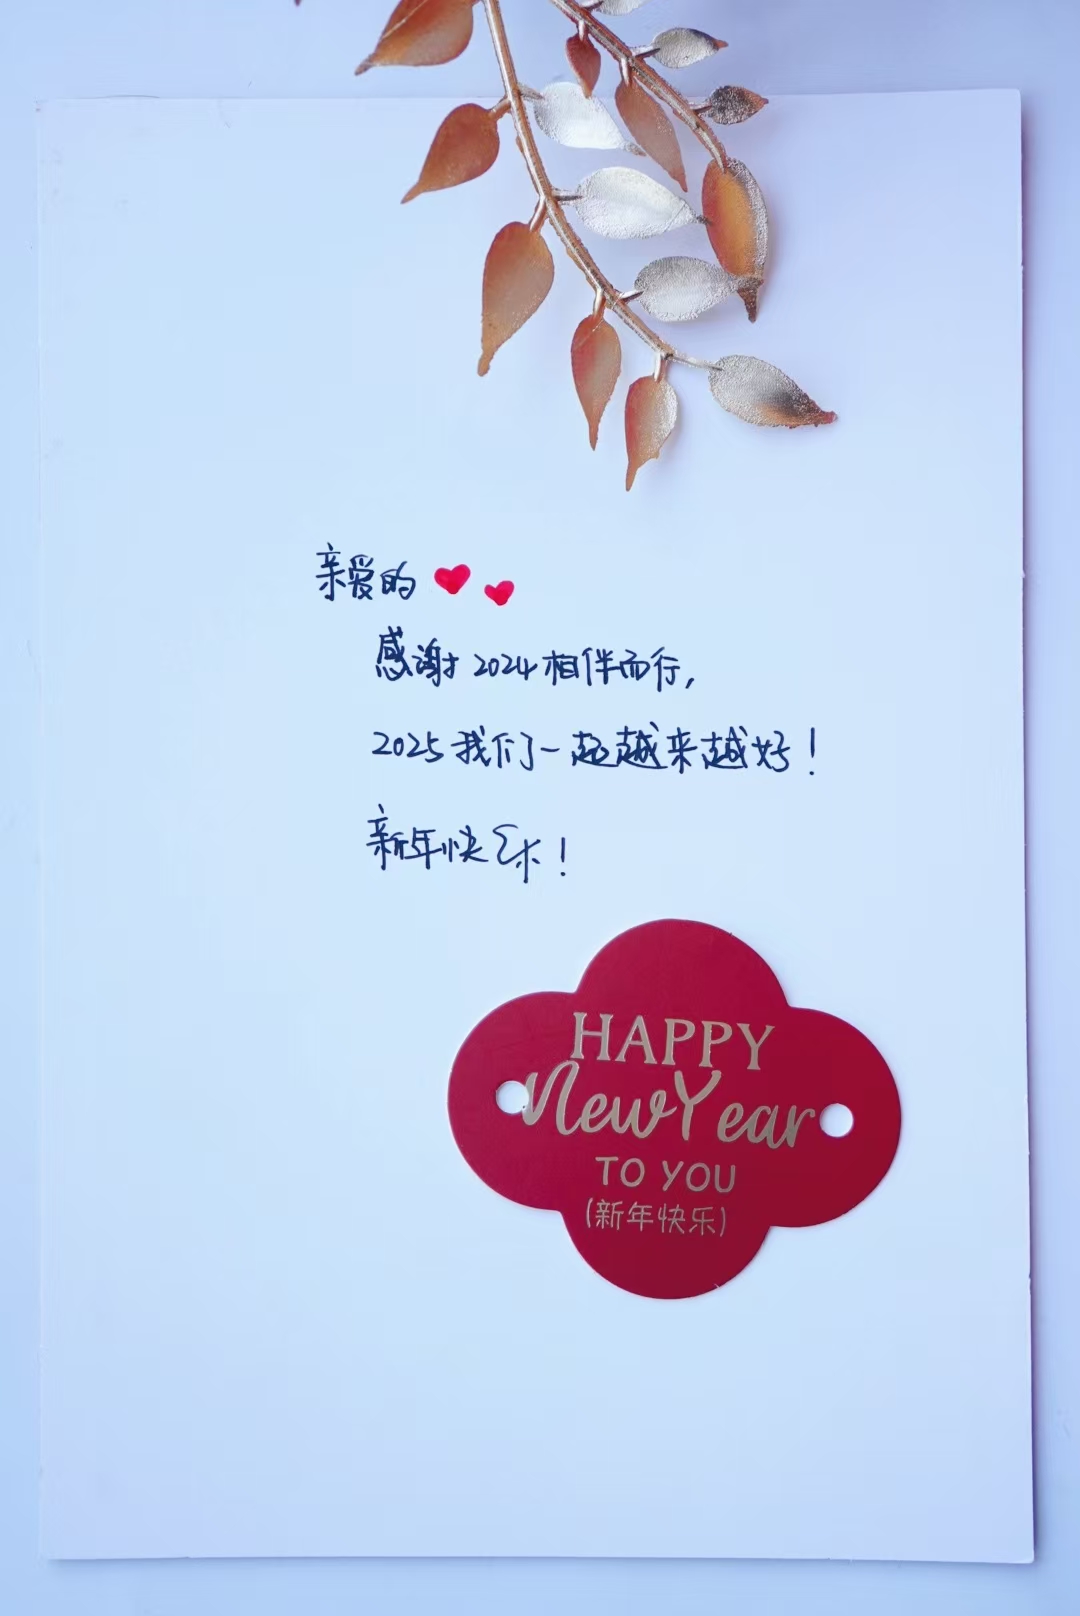 亲爱的
感谢2024相伴而行,
2025我们一起越来越好!
新年快乐!
HAPPY
New Year
TO YOU
(新年快乐)